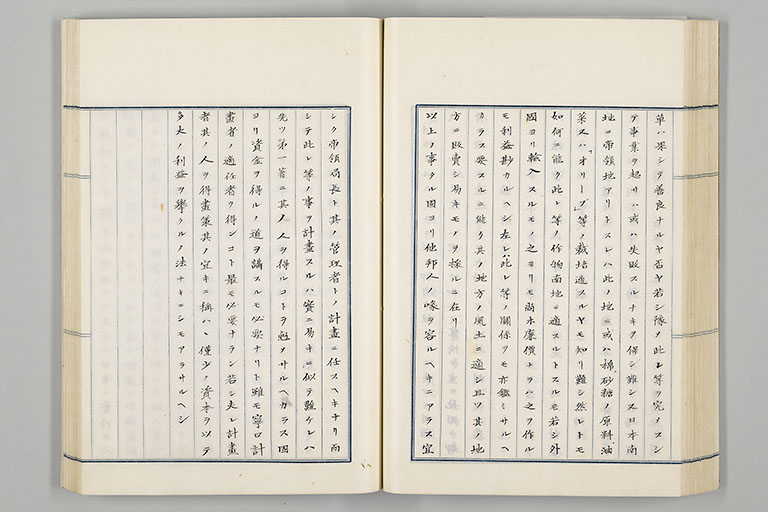 草ハ果シテ善良ナルヤ否ヤ若シ隊メ此レ等ヲ究メスシ
テ事業ヲ起サハ或ハ失敗スルナキヲ保シ難シ又日本南
地ニ帝領地アリトスレハ此ノ地ニ或ハ棉砂糖ノ原料油
菜又ハ「オリーブ」等ノ栽培適スルヤモ知リ難シ然レトモ
如何ニ能ク此レ等ノ作物南地ニ適スルトスルモ若シ外
國ヨリ輸入スルモノ之ヨリモ尚ホ廉價ナラハ之ヲ作ル
モ利益尠カルヘシ左レハ此レ等ノ關係ヲモ亦鑑ミサルヘ
カラス要スルニ能ク其ノ地方ノ風土ニ適シ且ツ其ノ地
方ニ販賣シ易キモノヲ採ルニ在リ
以上ノ事タル固ヨリ他邦人ノ喙ヲ容ルヘキニアラス宜
シク帝領局長ト其ノ管理者トノ計畫ニ任スヘキナリ而
シテ此レ等ノ事ヲ計畫スルハ實ニ易キニ似テ難ケレハ
先ツ第一著ニ其ノ人ヲ得ルコトヲ勉メサルヘカラス固
ヨリ資金ヲ得ルノ道ヲ講スルモ必要ナリト雖モ寧ロ計
畫者ノ適任者ヲ得ンコト最モ必要ナラン若シ夫レ計畫
者其ノ人ヲ得畫策其ノ宜キニ稱ハヽ僅少ノ資本ヲ以テ
多大ノ利益ヲ擧クルノ法ナキニシモアラサルヘシ